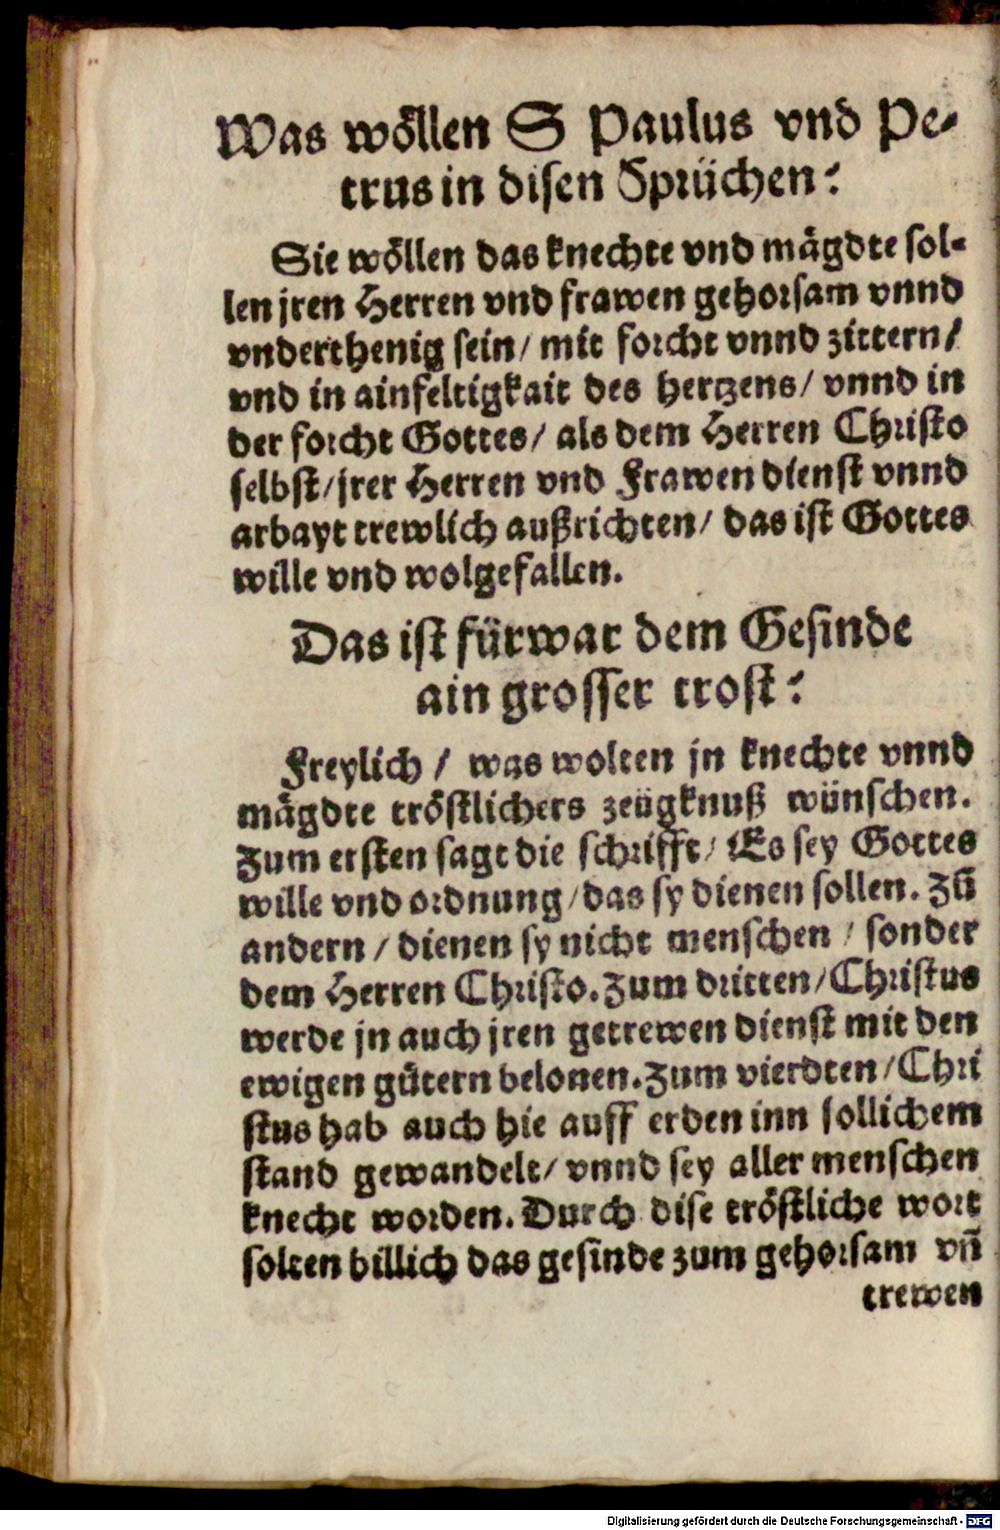 Was wöllen S Paulus vnd Pe-
trus in disen Sprüchen?
Sie wöllen das knechte vnd mägdte sol-
len jren Herren vnd frawen gehorsam vnnd
vnderthenig sein/ mit forcht vnnd zittern/
vnd in ainfeltigkait des hertzens/ vnnd in
der forcht Gottes/ als dem Herren Christo
selbst/ jrer Herren vnd Frawen dienst vnnd
arbayt trewlich außrichten/ das ist Gottes
wille vnd wolgefallen.
Das ist fürwar dem Gesinde
ain grosser trost?
Freylich/ was wolten jn knechte vnnd
mägdte tröstlichers zeügknuß wünschen.
Zum ersten sagt die schrifft/ Es sey Gottes
wille vnd ordnung/ das sy dienen sollen. Zũ
andern/ dienen sy nicht menschen/ sonder
dem Herren Christo. Zum dritten/ Christus
werde jn auch jren getrewen dienst mit den
ewigen gütern belonen. Zum vierdten/ Chri
stus hab auch hie auff erden inn sollichem
stand gewandelt/ vnnd sey aller menschen
knecht worden. Durch dise tröstliche wort
solten billich das gesinde zum gehorsam vñ
trewen
Digitalisierung gefördert durch die Deutsche Forschungsgemeinschaft - DFG